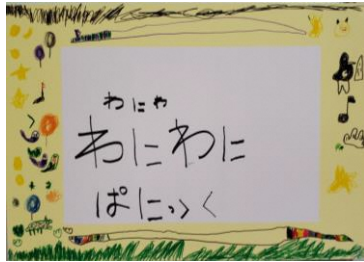 わにゃ
わにわに
ぱにっく